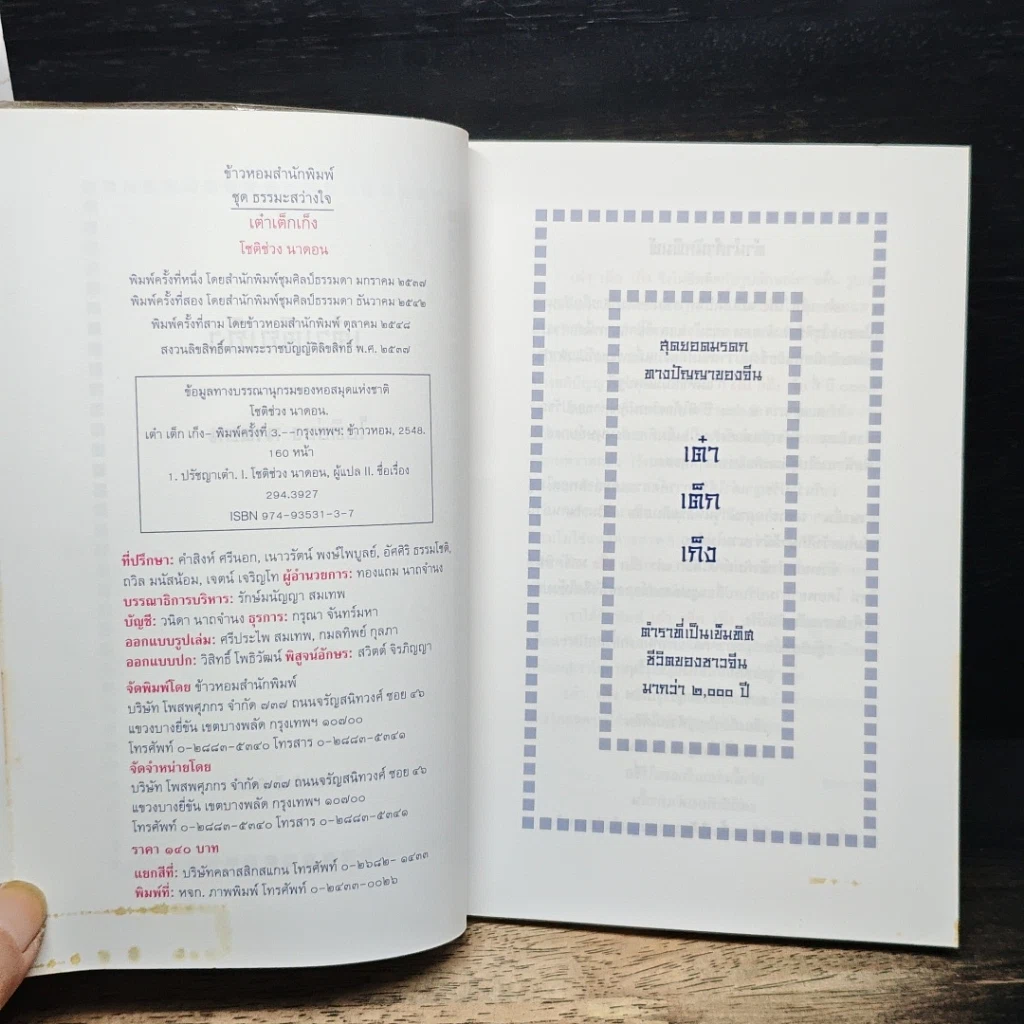 ข้าวหอมสำนักพิมพ์
ชุด ธรรมะสว่างใจ
เต๋าเต็กเก็ง
โชติช่วง นาดอน
พิมพ์ครั้งที่หนึ่ง โดยสำนักพิมพ์ชุมศิลป์ธรรมดา มกราคม ๒๕๓๗
พิมพ์ครั้งที่สอง โดยสำนักพิมพ์ชุมศิลป์ธรรมดา ธันวาคม ๒๕๔๒
พิมพ์ครั้งที่สาม โดยข้าวหอมสำนักพิมพ์ ตุลาคม ๒๕๔๘
สงวนลิขสิทธิ์ตามพระราชบัญญัติลิขสิทธิ์ พ.ศ. ๒๕๓๗
ข้อมูลทางบรรณานุกรมของหอสมุดแห่งชาติ
โชติช่วง นาดอน.
เต๋า เต็ก เก็ง-- พิมพ์ครั้งที่ 3.--กรุงเทพฯ: ข้าวหอม, 2548.
160 หน้า
1. ปรัชญาเต๋า. I. โชติช่วง นาดอน, ผู้แปล II. ชื่อเรื่อง
294.3927
ISBN 974-93531-3-7
ที่ปรึกษา: คำสิงห์ ศรีนอก, เนาวรัตน์ พงษ์ไพบูลย์, อัศศิริ ธรรมโชติ,
ถวิล มนัสน้อม, เจตน์ เจริญโท ผู้อำนวยการ: ทองแถม นาถจำนง
บรรณาธิการบริหาร: รักษ์มนัญญา สมเทพ
บัญชี: วนิดา นาถจำนง ธุรการ: กรุณา จันทร์มหา
ออกแบบรูปเล่ม: ศรีประไพ สมเทพ, กมลทิพย์ กุลภา
ออกแบบปก: วิสิทธิ์ โพธิวัฒน์ พิสูจน์อักษร: สวิตต์ จิรภิญญา
จัดพิมพ์โดย ข้าวหอมสำนักพิมพ์
บริษัท โพสพศุภกร จำกัด ๗๓๗ ถนนจรัญสนิทวงศ์ ซอย ๔๖
แขวงบางยี่ขัน เขตบางพลัด กรุงเทพฯ ๑๐๗๐๐
โทรศัพท์ ๐-๒๘๘๓-๕๓๔๐ โทรสาร ๐-๒๘๘๓-๕๓๔๑
จัดจำหน่ายโดย
บริษัท โพสพศุภกร จำกัด ๗๓๗ ถนนจรัญสนิทวงศ์ ซอย ๔๖
แขวงบางยี่ขัน เขตบางพลัด กรุงเทพฯ ๑๐๗๐๐
โทรศัพท์ ๐-๒๘๘๓-๕๓๔๐ โทรสาร ๐-๒๘๘๓-๕๓๔๑
ราคา ๑๔๐ บาท
แยกสีที่: บริษัทคลาสสิกสแกน โทรศัพท์ ๐-๒๖๘๒- ๑๔๓๓
พิมพ์ที่: หจก. ภาพพิมพ์ โทรศัพท์ ๐-๒๔๓๓-๐๐๒๖
สุดยอดมรดก
ทางปัญญาของจีน
เต๋า
เต็ก
เก็ง
ตำราที่เป็นเข็มทิศ
ชีวิตของชาวจีน
มากว่า ๒,๐๐๐ ปี